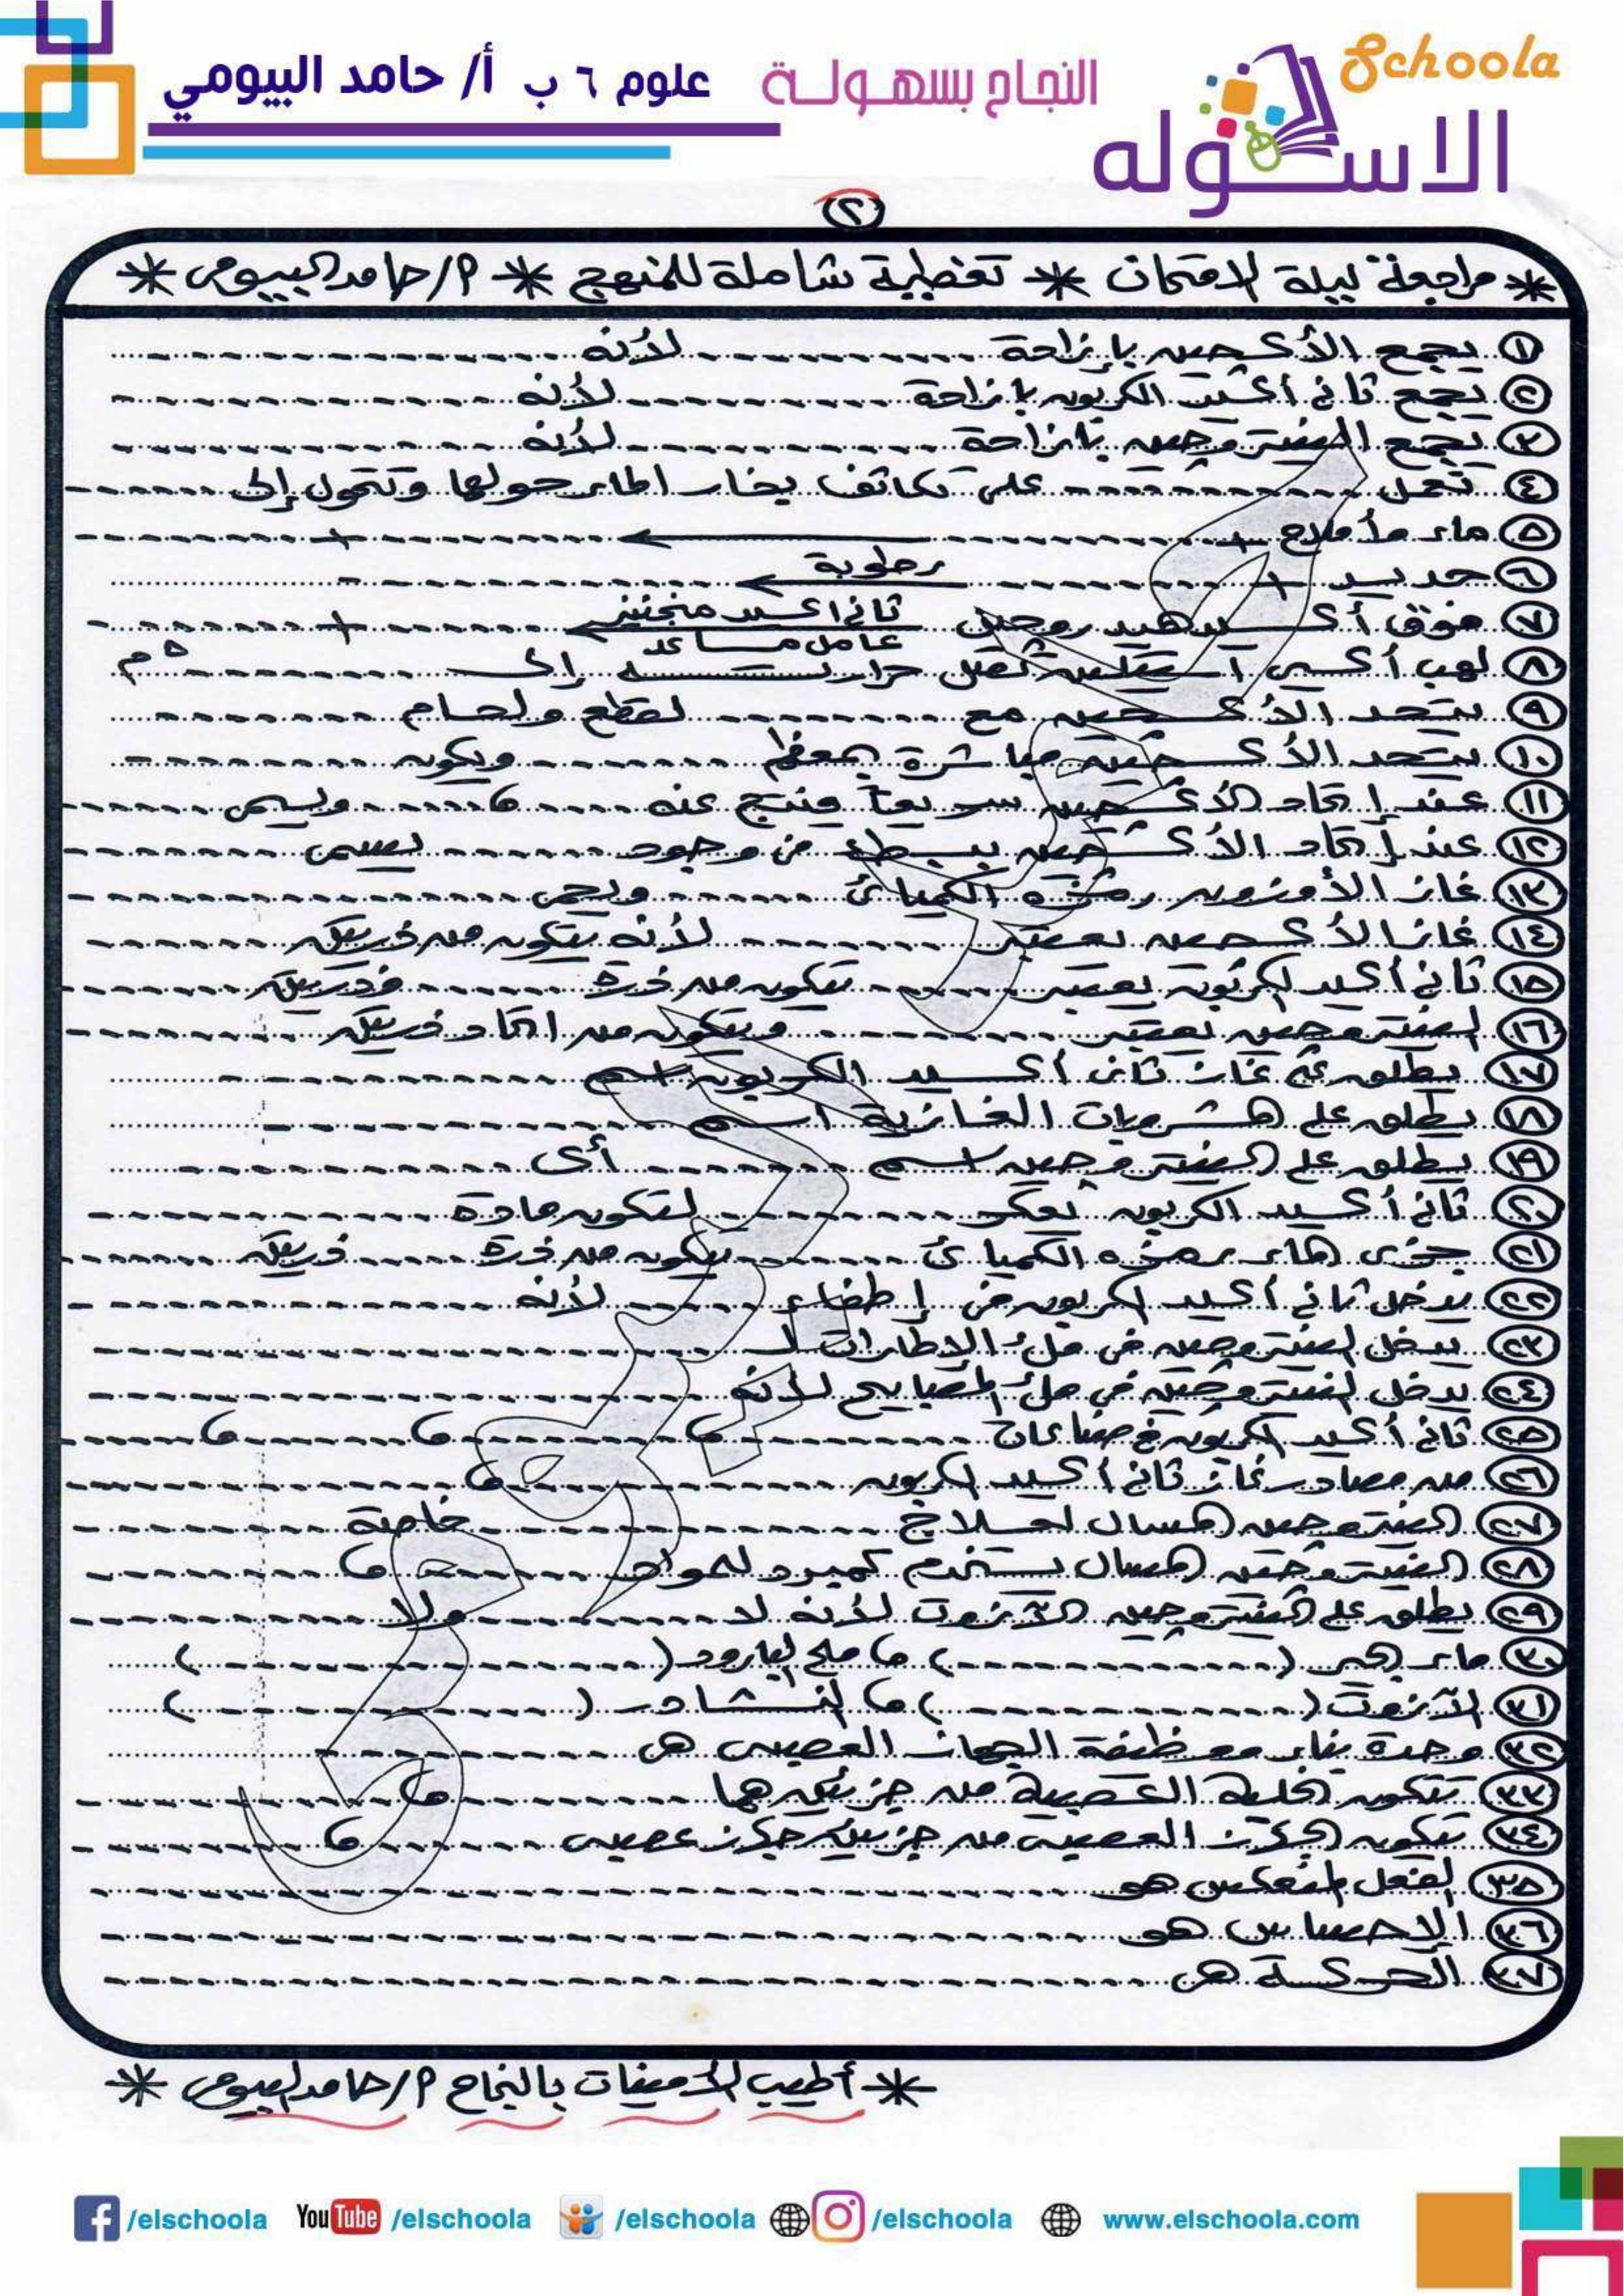 Schoola
الاسكوله
النجاح بسهولة
علوم ٦ ب أ/ حامد البيومي
٢
* مراجعة ليلة الامتحان * تغطية شاملة للمنهج * أ/حامد البيومى *
١ يجمع الأكسجين بإزاحة ............ لأنه ............
٢ يجمع ثانى أكسيد الكربون بإزاحة ............ لأنه ............
٣ يجمع النيتروجين بإزاحة ............ لأنه ............
٤ تعمل ............ على تكاثف بخار الماء حولها وتتحول إلى ............
٥ ماء + أملاح + ............ ← ............ + ............
٦ حديد + ............ رطوبة ← ............
٧ فوق أكسيد هيدروجين ثانى أكسيد منجنيز ← عامل مساعد ............ + ............
٨ لهب أكسى أستيلين تصل حرارته إلى ............ ° م
٩ يتحد الأكسجين مع ............ لقطع ولحام ............
١٠ يتحد الأكسجين مباشرة بمعظم ............ ويكون ............
١١ عند إتحاد الأكسجين سريعاً وينتج عنه ............ و ............ ويسمى ............
١٢ عند إتحاد الأكسجين ببطء فى وجود ............ يسمى ............
١٣ غاز الأوزون رمزه الكميائى ............ ويحمى ............
١٤ غاز الأكسجين يعتبر ............ لأنه يتكون من ذرتين ............
١٥ ثانى أكسيد الكربون يعتبر ............ يتكون من ذرة ............ وذرتين ............
١٦ النيتروجين يعتبر ............ ويتكون من اتحاد ذرتين ............
١٧ يطلق على غاز ثانى أكسيد الكربون اسم ............
١٨ يطلق على المشروبات الغازية اسم ............
١٩ يطلق على النيتروجين اسم ............ أى ............
٢٠ ثانى أكسيد الكربون يعكر ............ لتكون مادة ............
٢١ جزئ الماء رمزه الكميائى ............ يتكون من ذرة ............ ذرتين ............
٢٢ يدخل ثانى أكسيد الكربون فى إطفاء ............ لأنه ............
٢٣ يدخل النيتروجين فى ملئ الإطارات لـ ............
٢٤ يدخل النيتروجين فى ملئ المصابيح لأنه ............
٢٥ ثانى أكسيد الكربون فى صناعات ............ و ............ و ............ و ............
٢٦ من مصادر غاز ثانى أكسيد الكربون ............ و ............
٢٧ النيتروجين المسال لعلاج ............ خاصة ............
٢٨ النيتروجين المسال يستخدم كمبرد للمواد ............ و ............
٢٩ يطلق على النيتروجين الآزوت لأنه لا ............ ولا ............
٣٠ ماء الجير ( ............ ) و ملح البارود ( ............ )
٣١ الآزوت ( ............ ) و النشادر ( ............ )
٣٢ وحدة بناء ووظيفة الجهاز العصبى هى ............
٣٣ تتكون الخلية العصبية من جزئين هما ............ و ............
٣٤ يتكون الجهاز العصبى من جزئين جهاز عصبى ............ و ............
٣٥ الفعل المنعكس هو ............
٣٦ الإحساس هو ............
٣٧ الحركة هى ............
* أطيب الأمنيات بالنجاح أ/حامد البيومى *
/elschoola YouTube /elschoola /elschoola /elschoola www.elschoola.com